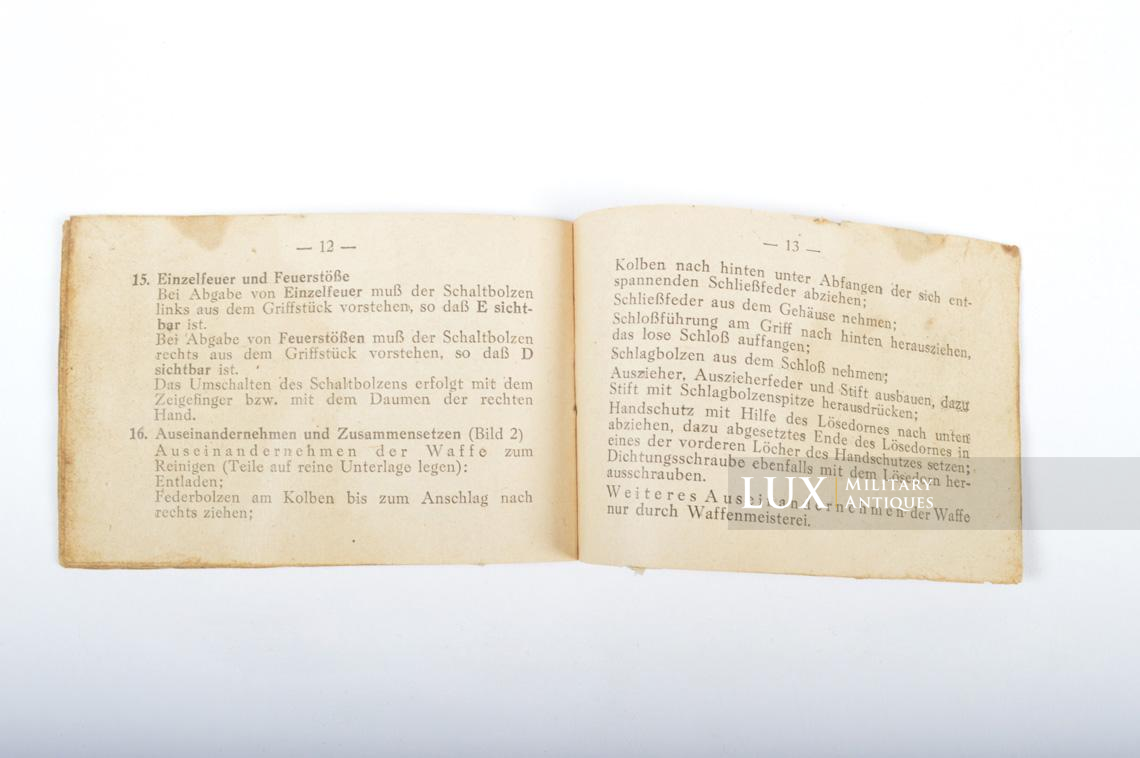 — 12 —
15. Einzelfeuer und Feuerstöße
Bei Abgabe von Einzelfeuer muß der Schaltbolzen
links aus dem Griffstück vorstehen, so daß E sicht-
bar ist.
Bei Abgabe von Feuerstößen muß der Schaltbolzen
rechts aus dem Griffstück vorstehen, so daß D
sichtbar ist.
Das Umschalten des Schaltbolzens erfolgt mit dem
Zeigefinger bzw. mit dem Daumen der rechten
Hand.
16. Auseinandernehmen und Zusammensetzen (Bild 2)
Auseinandernehmen der Waffe zum
Reinigen (Teile auf reine Unterlage legen):
Entladen;
Federbolzen am Kolben bis zum Anschlag nach
rechts ziehen;
— 13 —
Kolben nach hinten unter Abfangen der sich ent-
spannenden Schließfeder abziehen;
Schließfeder aus dem Gehäuse nehmen;
Schloßführung am Griff nach hinten herausziehen,
das lose Schloß auffangen;
Schlagbolzen aus dem Schloß nehmen;
Auszieher, Auszieherfeder und Stift ausbauen, dazu
Stift mit Schlagbolzenspitze herausdrücken;
Handschutz mit Hilfe des Lösedornes nach unten
abziehen, dazu abgesetztes Ende des Lösedornes in
eines der vorderen Löcher des Handschutzes setzen;
Dichtungsschraube ebenfalls mit dem Lösedorn her-
ausschrauben.
Weiteres Auseinandernehmen der Waffe
nur durch Waffenmeisterei.
LUX MILITARY ANTIQUES